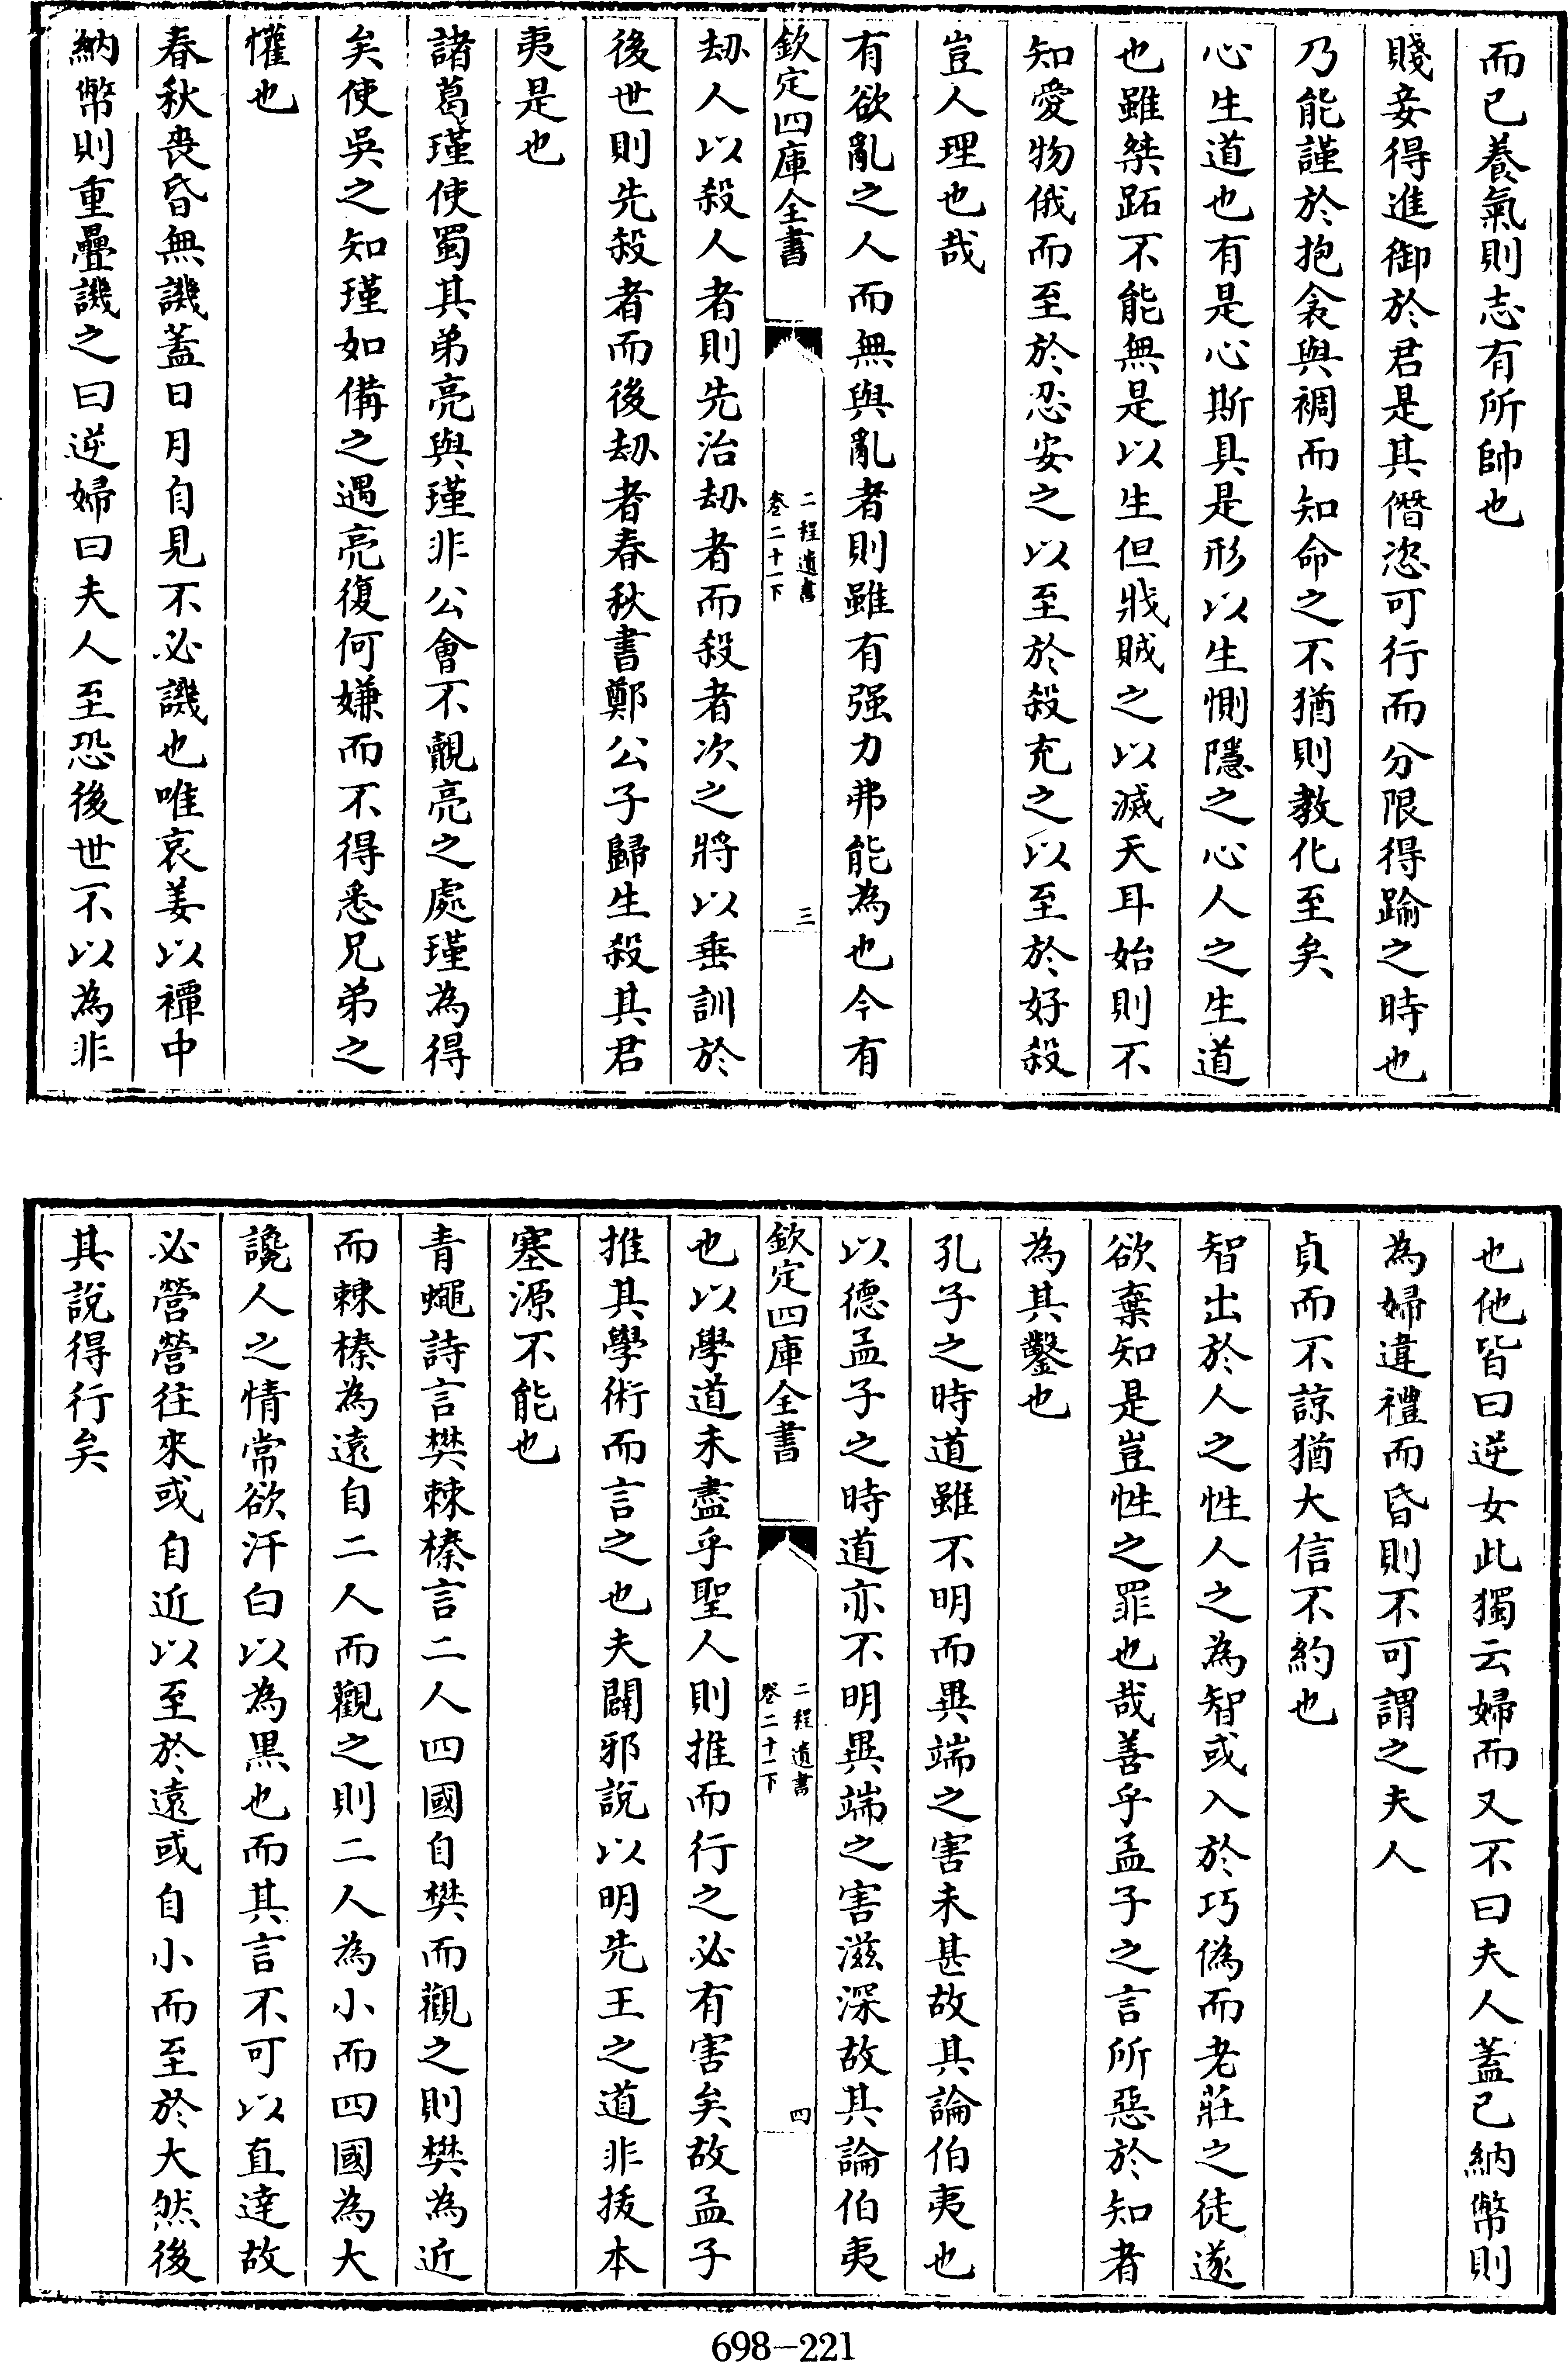 而已養氣則志有所帥也
賤妾得進御於君是其僭恣可行而分限得踰之時也
乃能謹於抱衾與裯而知命之不猶則教化至矣
心生道也有是心斯具是形以生惻隱之心人之生道
也雖桀跖不能無是以生但戕賊之以滅天耳始則不
知愛物俄而至於忍安之以至於殺充之以至於好殺
豈人理也哉
有欲亂之人而無與亂者則雖有强力弗能為也今有
欽定四庫全書
二程遺書
卷二十一下
三
劫人以殺人者則先治劫者而殺者次之將以垂訓於
後世則先殺者而後劫者春秋書鄭公子歸生殺其君
夷是也
諸葛瑾使蜀其弟亮與瑾非公會不覿亮之處瑾為得
矣使吳之知瑾如備之遇亮復何嫌而不得悉兄弟之
懽也
春秋喪昏無譏蓋日月自見不必譏也唯哀姜以禫中
納幣則重疊譏之曰逆婦曰夫人至恐後世不以為非
也他皆曰逆女此獨云婦而又不曰夫人蓋已納幣則
為婦違禮而昏則不可謂之夫人
貞而不諒猶大信不約也
智出於人之性人之為智或入於巧偽而老莊之徒遂
欲棄知是豈性之罪也哉善乎孟子之言所惡於知者
為其鑿也
孔子之時道雖不明而異端之害未甚故其論伯夷也
以德孟子之時道亦不明異端之害滋深故其論伯夷
欽定四庫全書
二程遺書
卷二十一下
四
也以學道未盡乎聖人則推而行之必有害矣故孟子
推其學術而言之也夫闢邪說以明先王之道非拔本
塞源不能也
青蠅詩言樊棘榛言二人四國自樊而觀之則樊為近
而棘榛為遠自二人而觀之則二人為小而四國為大
讒人之情常欲汙白以為黑也而其言不可以直達故
必營營往來或自近以至於遠或自小而至於大然後
其說得行矣
698-221